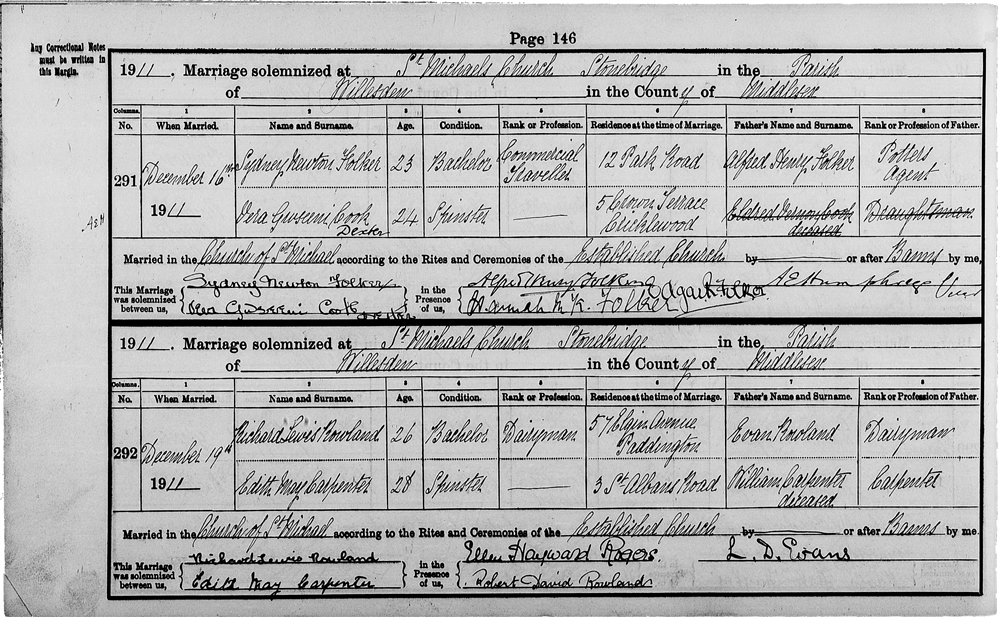 Page 146
Any Correctional Notes
must be written in
this Margin.
1911. Marriage solemnized at St Michaels Church Stonebridge in the Parish
of Willesden in the County of Middlesex
Columns. 1 2 3 4 5 6 7 8
No. When Married. Name and Surname. Age. Condition. Rank or Profession. Residence at the time of Marriage. Father's Name and Surname. Rank or Profession of Father.
291 December 16th 1911
Sydney Newton Folker 23 Bachelor Commercial Traveller 12 Park Road Alfred Henry Folker Potters Agent
Vera Cook Dexter 24 Spinster 5 Crown Terrace Cricklewood Eldred Vernon Cook deceased Draughtsman
Married in the Church of St Michael according to the Rites and Ceremonies of the Established Church by or after Banns by me,
This Marriage was solemnized between us, Sydney Newton Folker Vera Cook Dexter in the Presence of us, Alfred Henry Folker Hannah M. K. Folker Agar Folker A E Humphreys Vicar
1911. Marriage solemnized at St Michaels Church Stonebridge in the Parish
of Willesden in the County of Middlesex
Columns. 1 2 3 4 5 6 7 8
No. When Married. Name and Surname. Age. Condition. Rank or Profession. Residence at the time of Marriage. Father's Name and Surname. Rank or Profession of Father.
292 December 19th 1911
Richard Lewis Rowland 26 Bachelor Dairyman 57 Elgin Avenue Paddington Evan Rowland Dairyman
Edith May Carpenter 28 Spinster 3 St Albans Road William Carpenter deceased Carpenter
Married in the Church of St Michael according to the Rites and Ceremonies of the Established Church by or after Banns by me.
This Marriage was solemnized between us, Richard Lewis Rowland Edith May Carpenter in the Presence of us, Ellen Hayward Rogers Robert David Rowland L. D. Evans